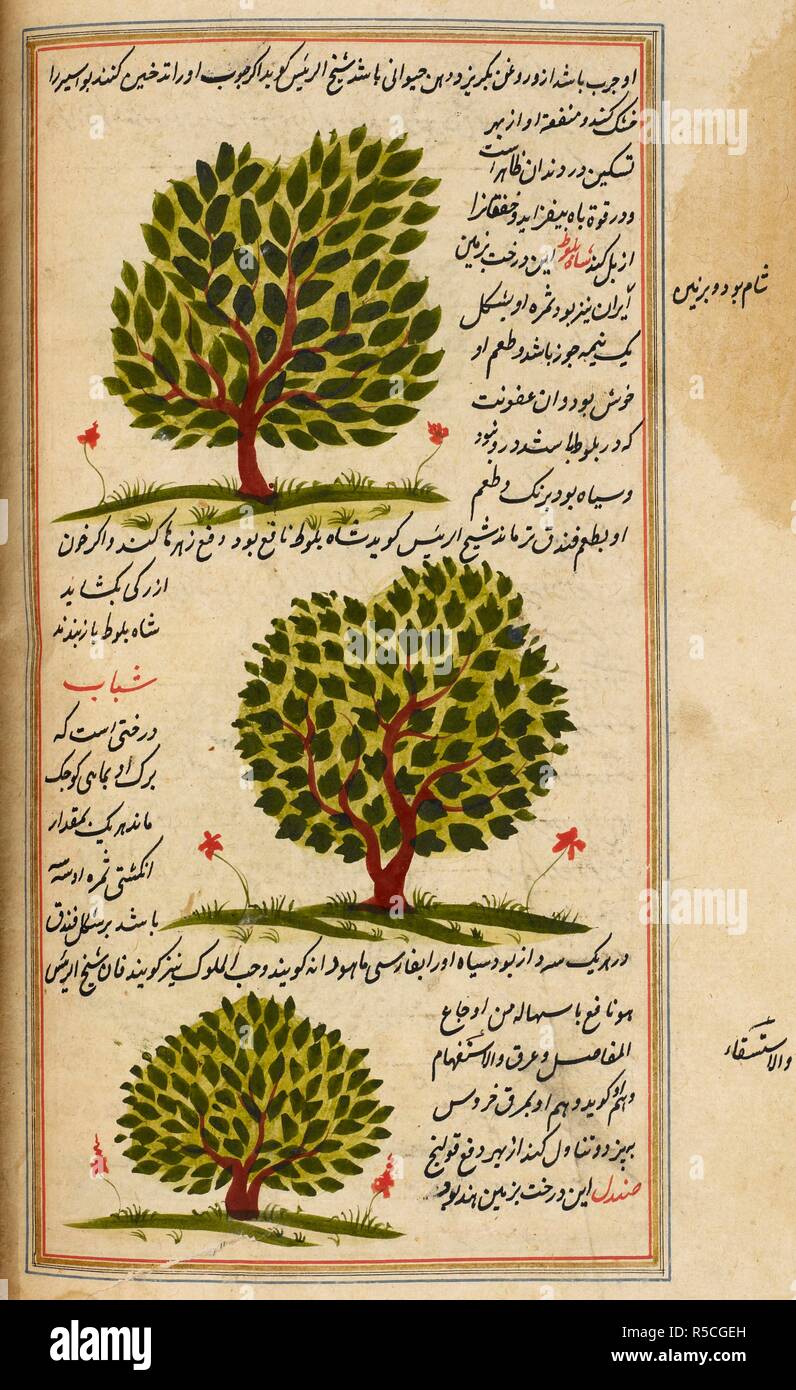 او جرب باشد از و روغن بگریزد و دهن حیوانی باشد شیخ الرئیس کوید اکر چوب او را تدخین کنند بواسیر را
خشک کند و منفعة او از بهر
تسکین درد دندان ظاهر است
و در قوة باه بیفزاید و خفقانرا
زایل کند شاه بلوط این درخت بزمین
شام بود و بزمین
ایران نیز بود ثمره او بشکل
یک نیمه جوز باشد و طعم او
خوش بود و ان عفونت
که در بلوط باشد درو نبود
و سیاه بود برنک و طعم
او بطعم فندق تر ماند شیخ الرئیس کوید شاه بلوط نافع بود دفع زهرها کند و اکر خون
از رکی بکشاید
شاه بلوط باز بندد
شباب
درختی است که
برک او بماهی کوچک
ماند هریک بمقدار
انکشتی ثمره او سه
باشد بر شکل فندق
در هریک سه دانه بود سیاه او را بفارسی ماهودانه کویند و حب الملوک نیز کویند قال شیخ الرئیس
هو نافع باسهاله من اوجاع
المفاصل و عرق
والاستسقاء
و هم او کوید و هم او بمرق خروس
بپزد و تناول کند از بهر دفع قولنج
صندل این درخت بزمین هند بود
alamy
Image ID: R5CGEH
www.alamy.com